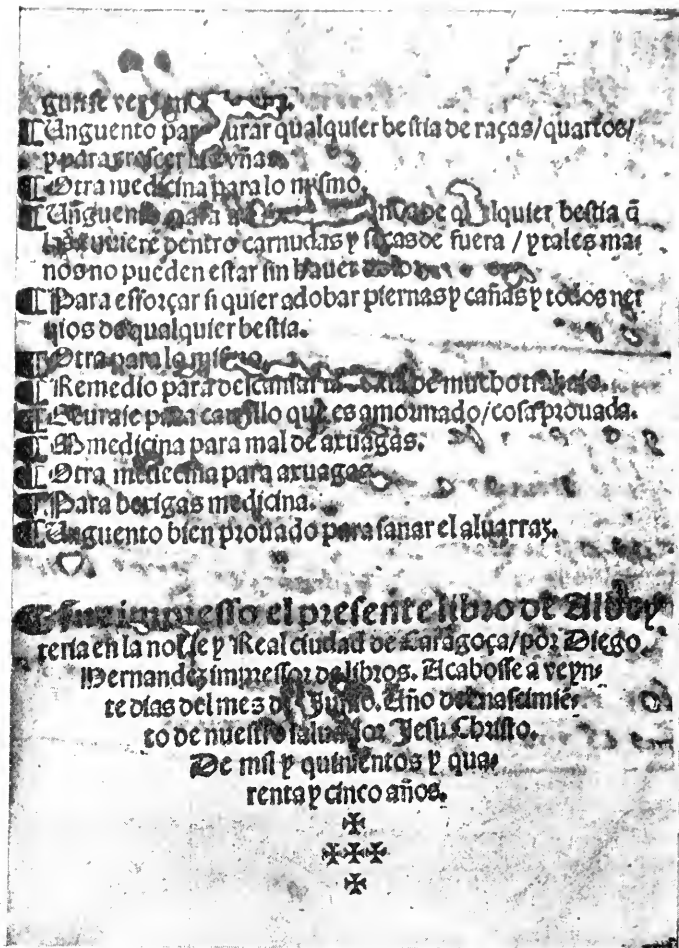 ¶Unguento para curar qualquier bestia de raças/quartos/
y para crescer vñas.
¶Otra medicina para lo mismo.
¶Unguento para manos de qualquier bestia q̃
las tuuiere dentro carnudas y secas de fuera / y tales ma⸗
nos no pueden estar sin hauer
¶Para esforçar si quier adobar piernas y cañas y todos ner
uios de qualquier bestia.
¶Otra para lo mismo.
¶Remedio para descansar la bestia de mucho trabajo.
¶Curase para cauallo que es amormado/cosa prouada.
¶Medicina para mal de axuagas.
¶Otra medecina para axuagas.
¶Para bexigas medicina.
¶Unguento bien prouado para sanar el aluarraz.
¶Fue impresso el presente libro de Albey
teria en la noble y Real ciudad de Çaragoça/por Diego
Hernandez impressor de libros. Acabosse a veyn⸗
te dias del mes de Junio. Año del nascimiē⸗
to de nuestro saluador Jesu Christo.
De mil y quinientos y qua⸗
renta y cinco años.
✠
✠✠✠
✠